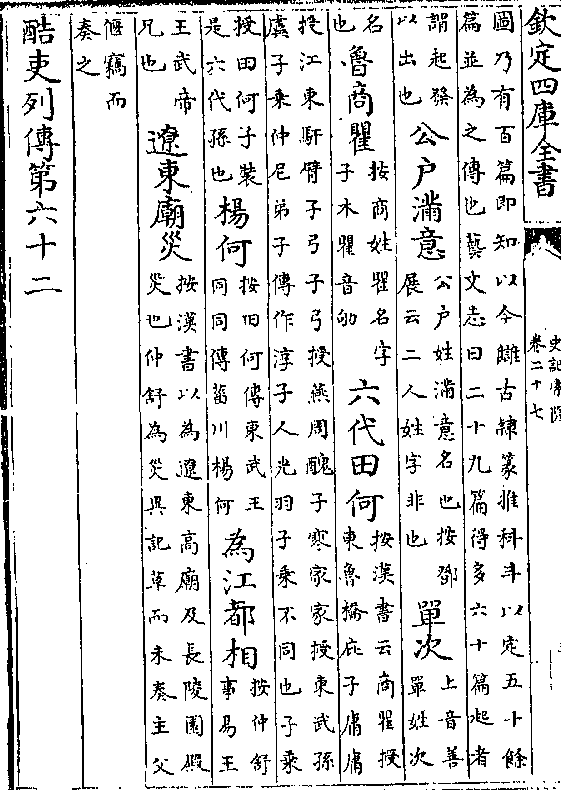 欽定四庫全書
史記索隱
卷二十七
圖乃有百篇即知以今讎古隸篆推科斗以定五十餘
篇並為之傳也藝文志曰二十九篇得多六十篇起者
謂起發
以出也
公户滿意
公户姓滿意名也按鄧
展云二人姓字非也
單次
上音善
單姓次
名
也
魯商瞿
按商姓瞿名字
子木瞿音劬
六代田何
按漢書云商瞿授
東魯橋庇子庸庸
授江東馯臂子弓子弓授燕周醜子寒家家授東武孫
虞子乗仲尼弟子傳作淳子人光羽子乗不同也子乗
授田何子裝
是六代孫也
楊何
按田何傳東武王
同同傳菑川楊何
為江都相
按仲舒
事易王
王武帝
兄也
遼東廟災
按漢書以為遼東高廟及長陵園殿
災也仲舒為災異記草而未奏主父
偃竊而
奏之
酷吏列傳第六十二